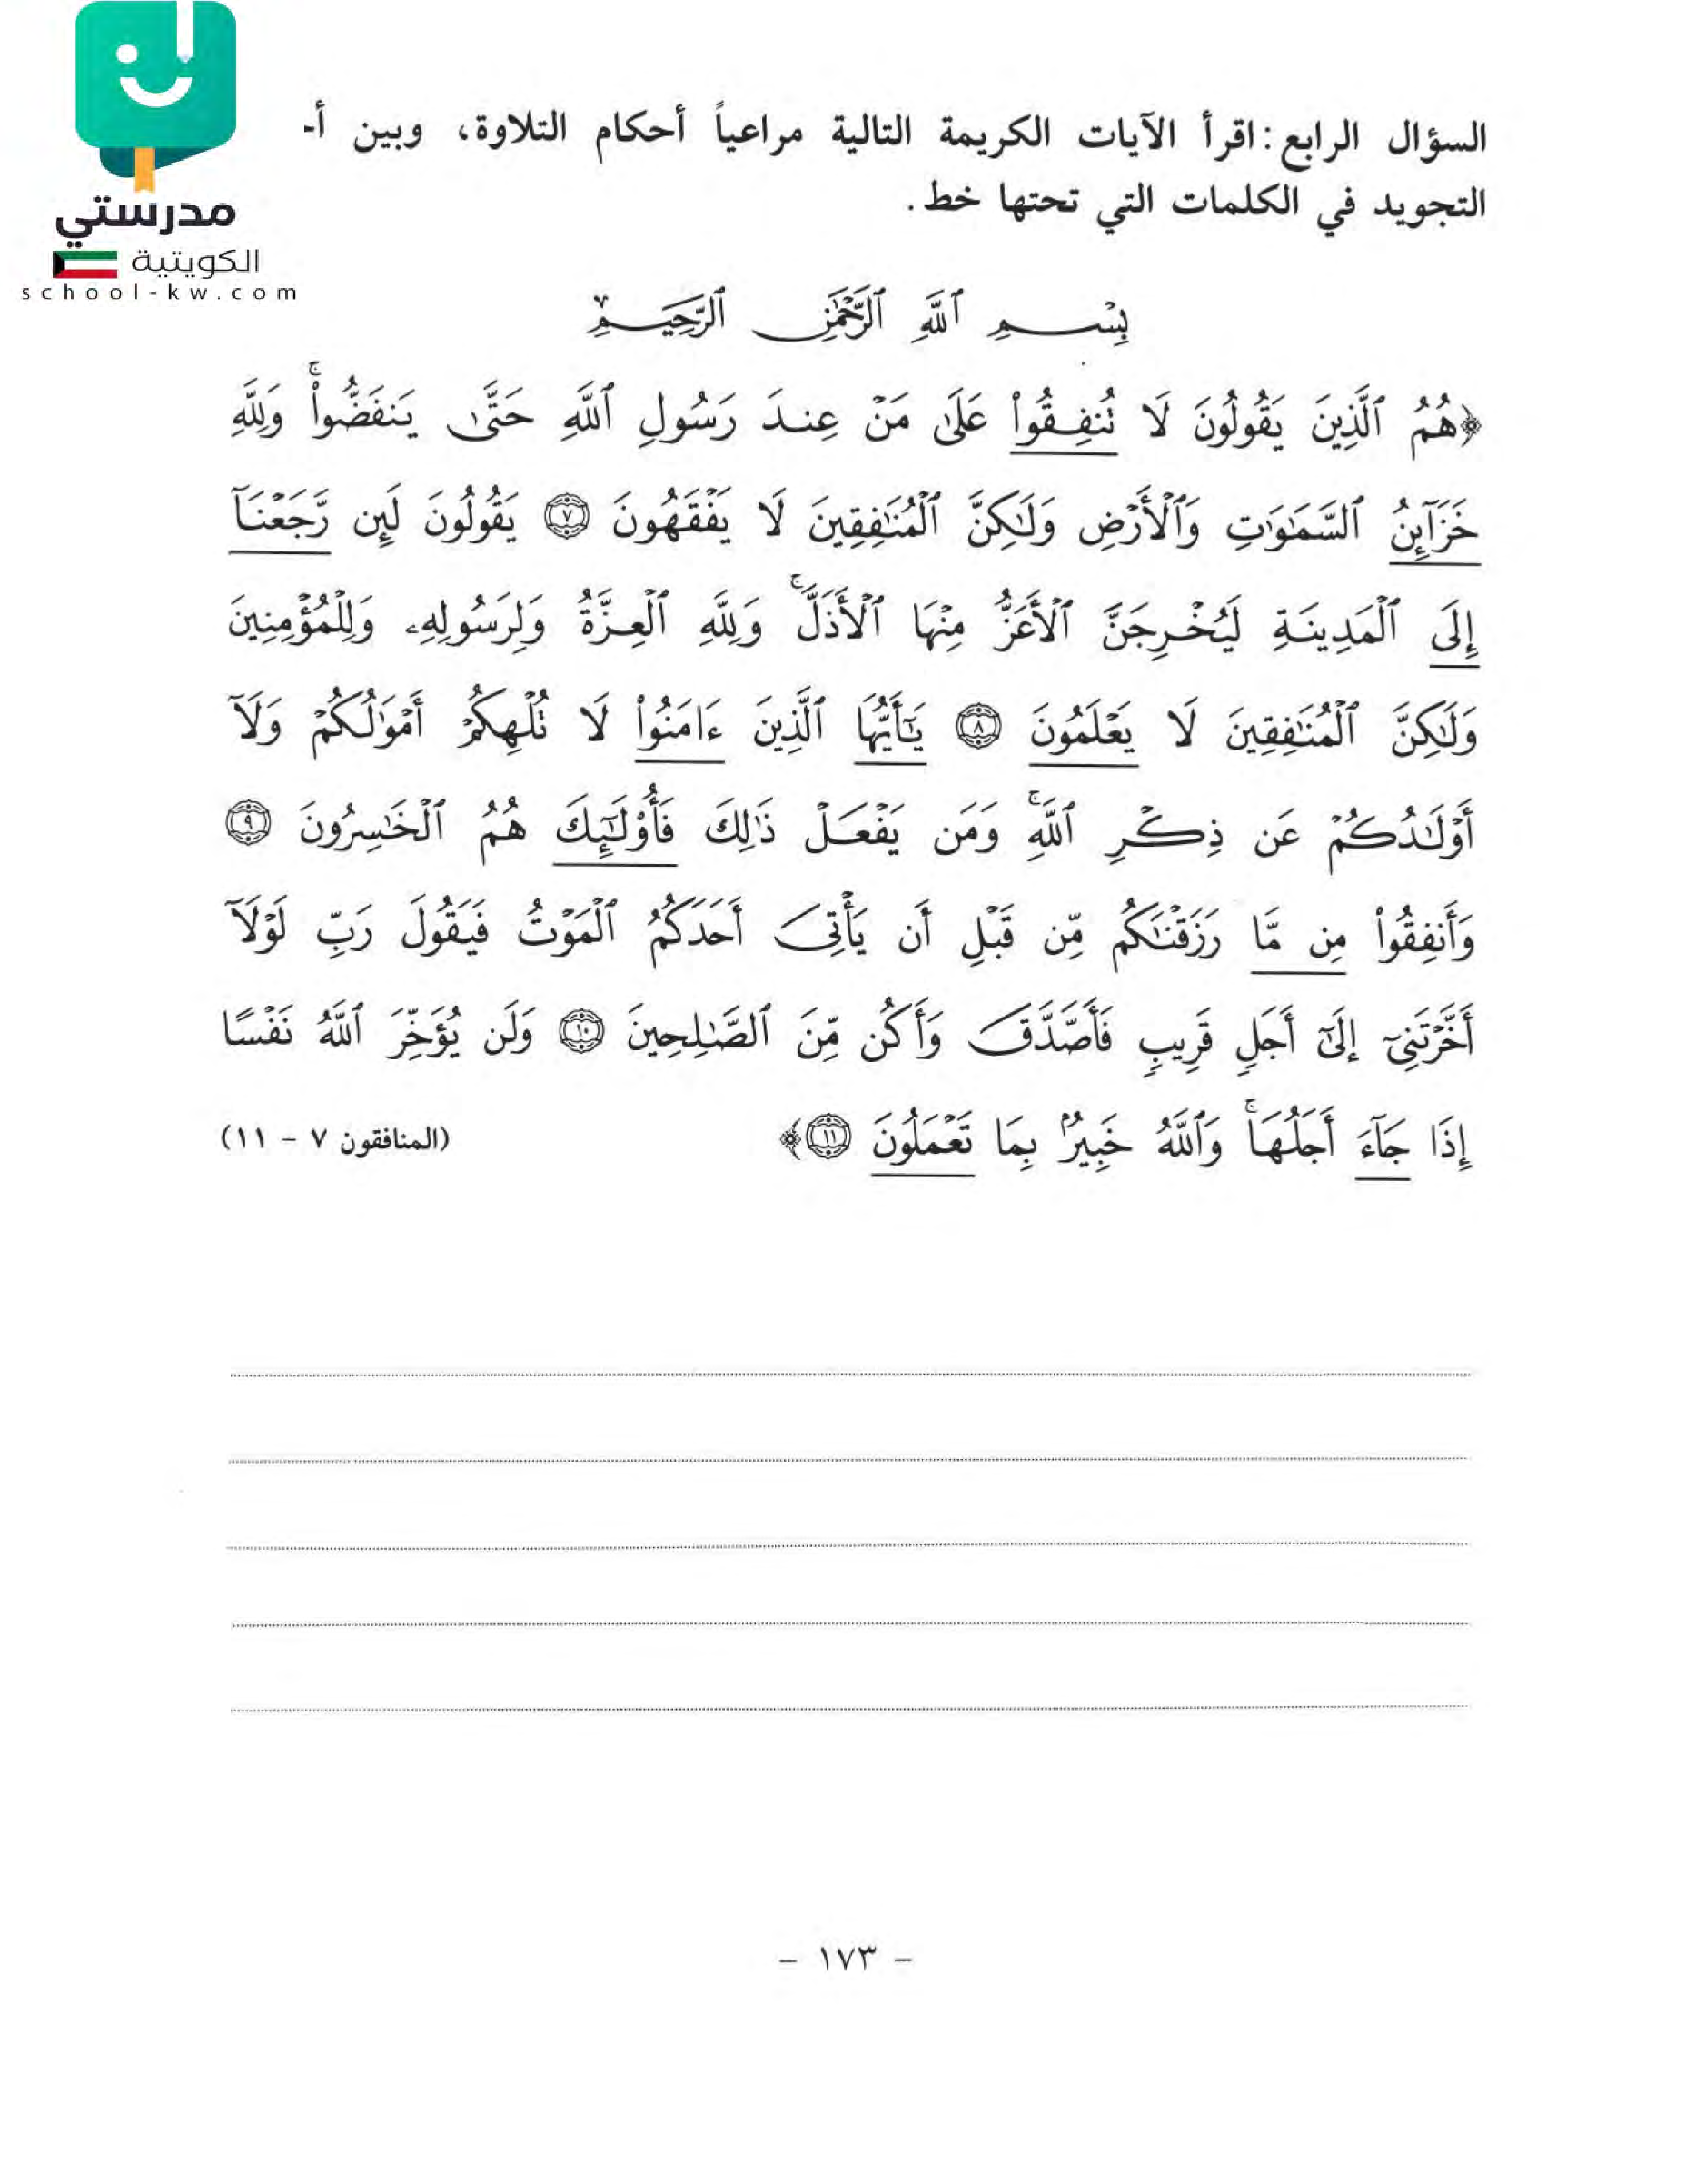 مدرستي
الكويتية
school-kw.com
السؤال الرابع: اقرأ الآيات الكريمة التالية مراعياً أحكام التلاوة، وبين أ-
التجويد في الكلمات التي تحتها خط.
بِسْمِ ٱللَّهِ ٱلرَّحْمَٰنِ ٱلرَّحِيمِ
﴿هُمُ ٱلَّذِينَ يَقُولُونَ لَا تُنفِقُوا۟ عَلَىٰ مَنْ عِندَ رَسُولِ ٱللَّهِ حَتَّىٰ يَنفَضُّوا۟ۗ وَلِلَّهِ
خَزَآئِنُ ٱلسَّمَٰوَٰتِ وَٱلْأَرْضِ وَلَٰكِنَّ ٱلْمُنَٰفِقِينَ لَا يَفْقَهُونَ ٧ يَقُولُونَ لَئِن رَّجَعْنَآ
إِلَى ٱلْمَدِينَةِ لَيُخْرِجَنَّ ٱلْأَعَزُّ مِنْهَا ٱلْأَذَلَّۚ وَلِلَّهِ ٱلْعِزَّةُ وَلِرَسُولِهِۦ وَلِلْمُؤْمِنِينَ
وَلَٰكِنَّ ٱلْمُنَٰفِقِينَ لَا يَعْلَمُونَ ٨ يَٰٓأَيُّهَا ٱلَّذِينَ ءَامَنُوا۟ لَا تُلْهِكُمْ أَمْوَٰلُكُمْ وَلَآ
أَوْلَٰدُكُمْ عَن ذِكْرِ ٱللَّهِۚ وَمَن يَفْعَلْ ذَٰلِكَ فَأُو۟لَٰٓئِكَ هُمُ ٱلْخَٰسِرُونَ ٩
وَأَنفِقُوا۟ مِن مَّا رَزَقْنَٰكُم مِّن قَبْلِ أَن يَأْتِىَ أَحَدَكُمُ ٱلْمَوْتُ فَيَقُولَ رَبِّ لَوْلَآ
أَخَّرْتَنِىٓ إِلَىٰٓ أَجَلٍ قَرِيبٍ فَأَصَّدَّقَ وَأَكُن مِّنَ ٱلصَّٰلِحِينَ ١٠ وَلَن يُؤَخِّرَ ٱللَّهُ نَفْسًا
إِذَا جَآءَ أَجَلُهَاۚ وَٱللَّهُ خَبِيرٌۢ بِمَا تَعْمَلُونَ ١١﴾ (المنافقون ٧ - ١١)
- ١٧٣ -